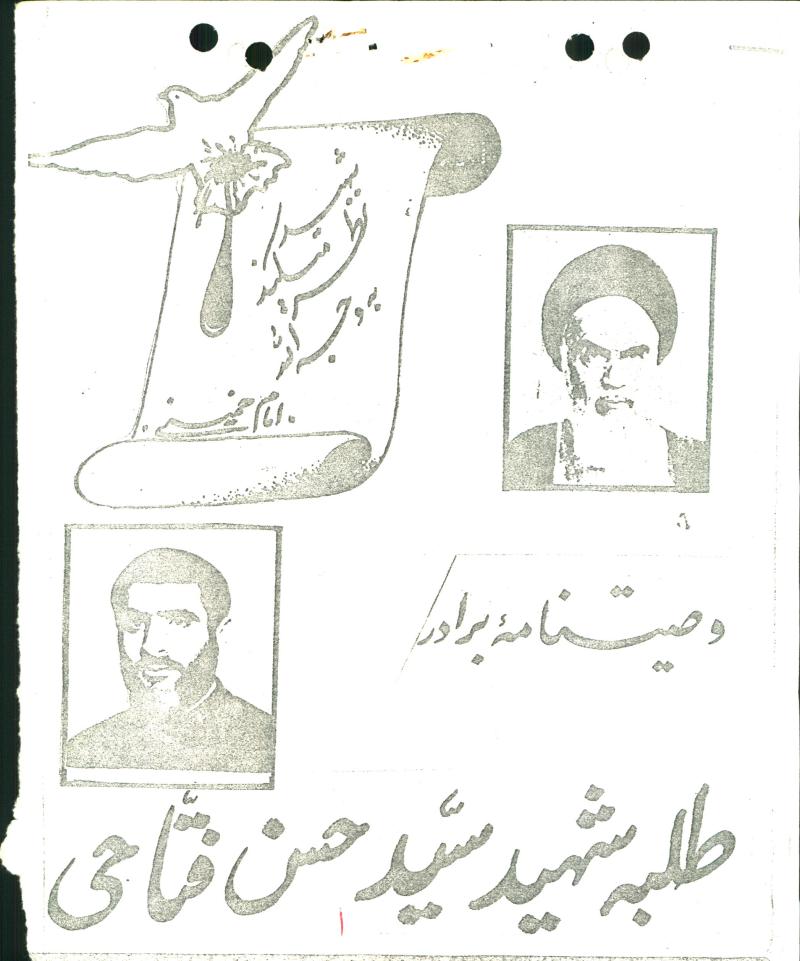 شهید
نظر میکند
به وجه الله
امام خمینی
وصیتنامهٔ برادر
طلبه شهید سیّد حسن فتّاحی